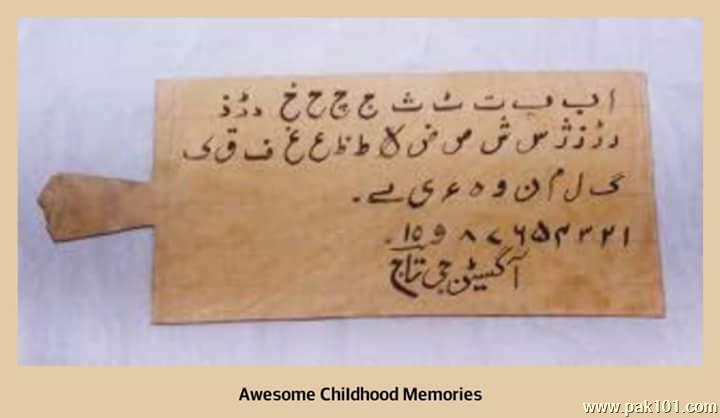 ا ب پ ت ٹ ث ج چ ح خ د ڈ ذ
ر ڑ ز ژ س ش ص ض ط ظ ع غ ف ق ک
گ ل م ن و ہ ء ی ے۔
۱ ۲ ۳ ۴ ۵ ۶ ۷ ۸ ۹ ۱۰۔
آگسیٹن جی تاج
Awesome Childhood Memories
www.pak101.com